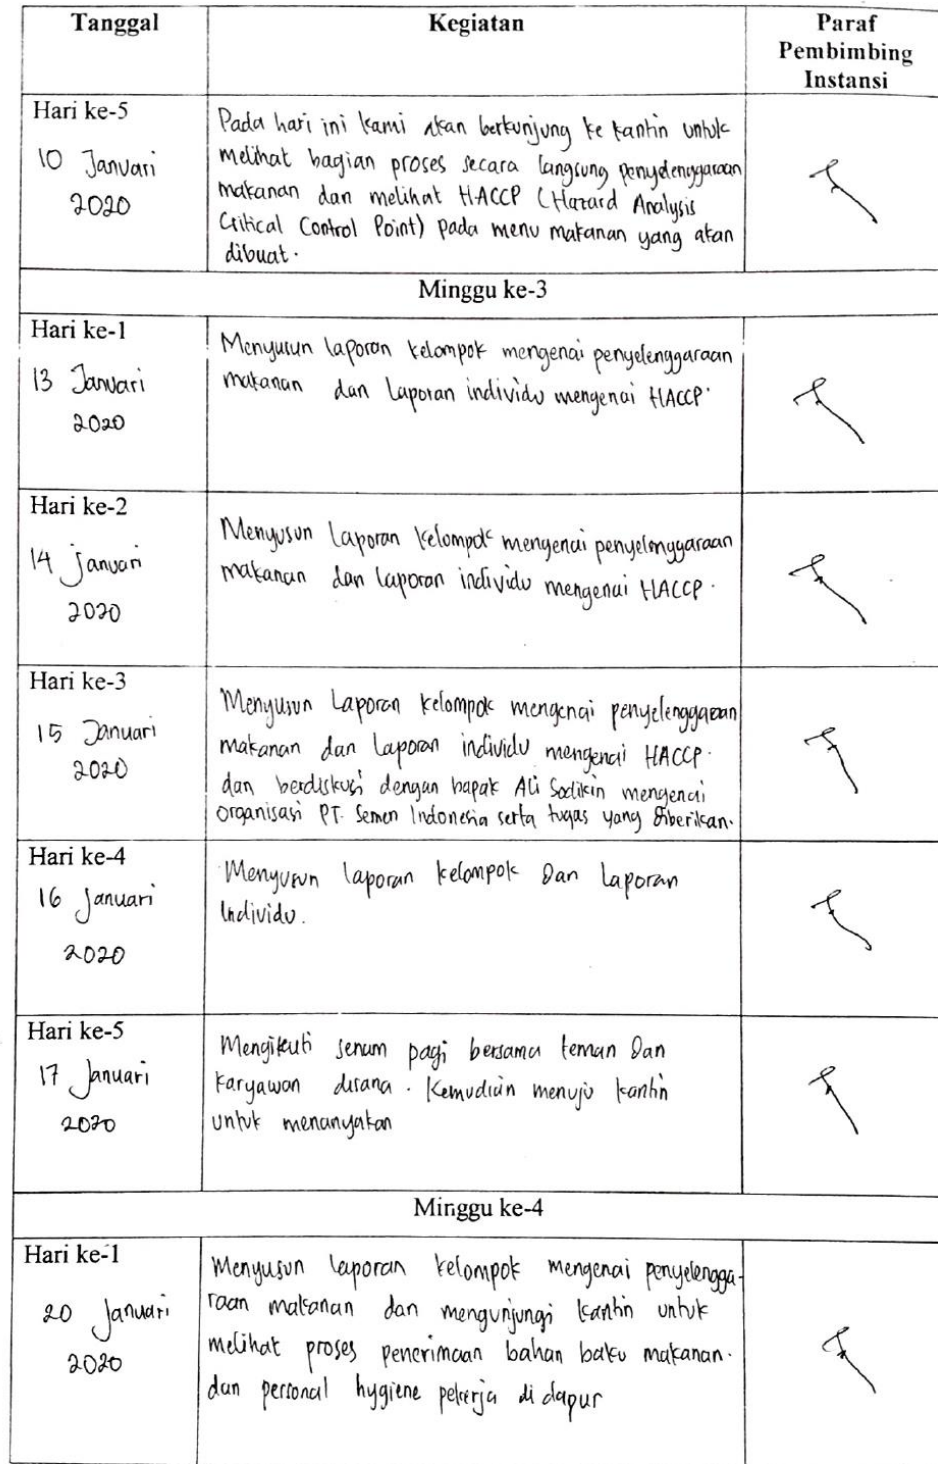 Tanggal
Kegiatan
Paraf
Pembimbing
Instansi
Hari ke-5
10 Januari
2020
Pada hari ini kami akan berkunjung ke kantin untuk
melihat bagian proses secara langsung penyelenggaraan
makanan dan melihat HACCP (Hazard Analysis
Critical Control Point) pada menu makanan yang akan
dibuat.
Minggu ke-3
Hari ke-1
13 Januari
2020
Menyusun laporan kelompok mengenai penyelenggaraan
makanan dan Laporan individu mengenai HACCP.
Hari ke-2
14 Januari
2020
Menyusun Laporan kelompok mengenai penyelenggaraan
makanan dan laporan individu mengenai HACCP.
Hari ke-3
15 Januari
2020
Menyusun Laporan kelompok mengenai penyelenggaraan
makanan dan Laporan individu mengenai HACCP.
dan berdiskusi dengan bapak Ali Sodikin mengenai
organisasi PT. Semen Indonesia serta tugas yang diberikan.
Hari ke-4
16 Januari
2020
Menyusun laporan kelompok dan Laporan
Individu.
Hari ke-5
17 Januari
2020
Mengikuti senam pagi bersama teman dan
karyawan disana. Kemudian menuju kantin
untuk menanyakan
Minggu ke-4
Hari ke-1
20 Januari
2020
Menyusun laporan kelompok mengenai penyelengga-
raan makanan dan mengunjungi kantin untuk
melihat proses penerimaan bahan baku makanan.
dan personal hygiene pekerja di dapur